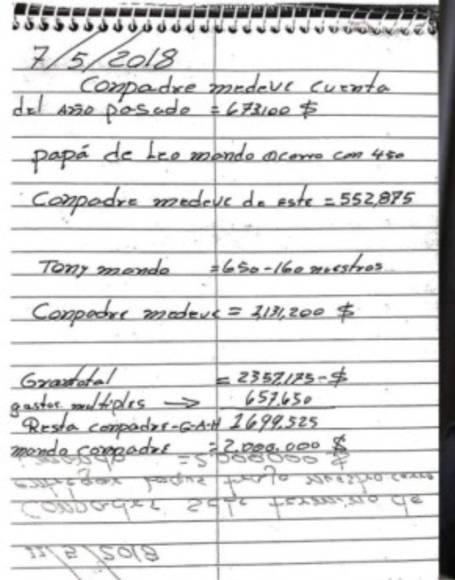 7/5/2018
Conpadre medeve cuenta
del Año pasado = 673,100 $
papá de Leo mando ocarro con 450
Conpadre medeve de este = 552,875
Tony mando = 650-160 nuestros
Conpadre medeve = 1,131,200 $
Grantotal = 2357,175-$
gastos multiples → 657,650
Resta conpadre-G-A-H 1699,525
mando conpadre = 2.000.000 $